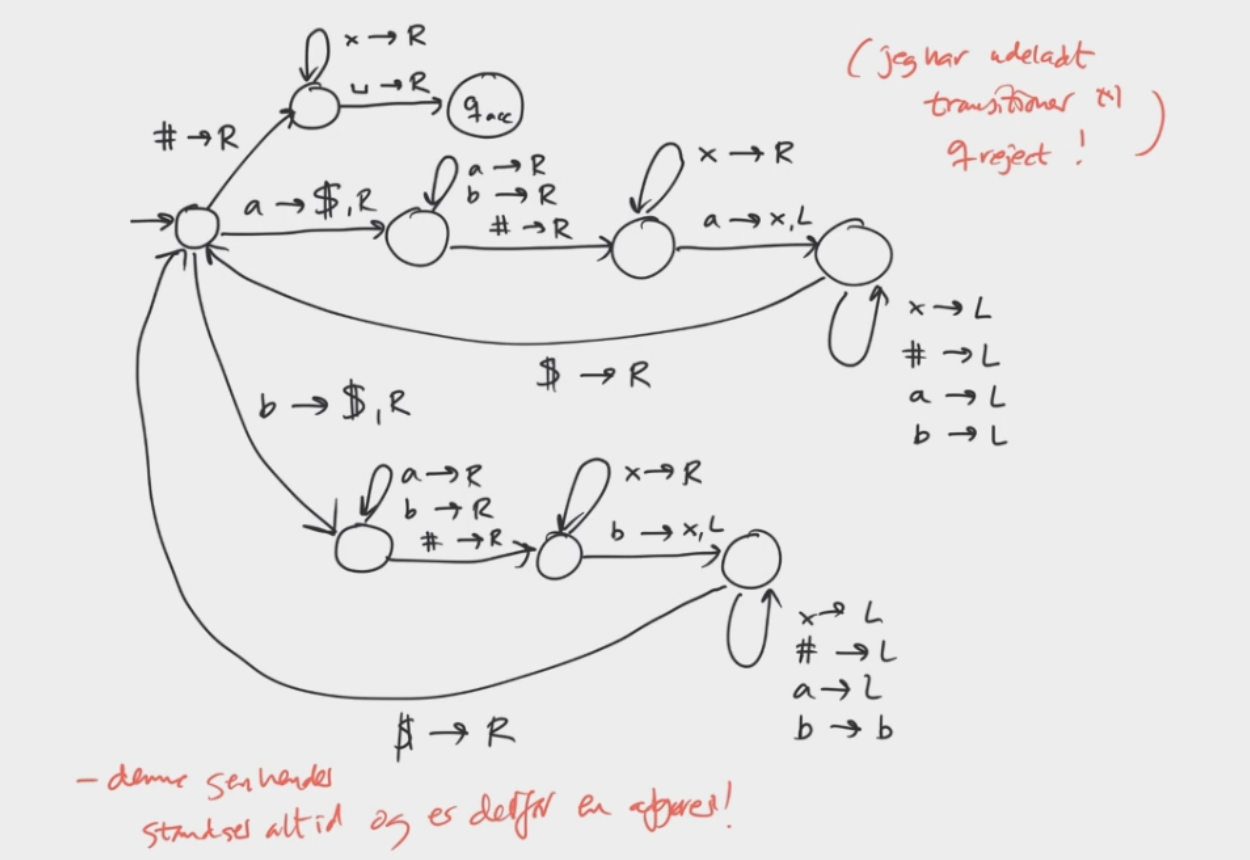 x → R
␣ → R
q acc
# → R
(jeg har udeladt
transitioner til
q reject ! )
a → $, R
a → R
b → R
# → R
x → R
a → x, L
x → L
# → L
a → L
b → L
$ → R
b → $, R
a → R
b → R
# → R
x → R
b → x, L
x → L
# → L
a → L
b → b
$ → R
- denne
standser altid og er derfor en afgører!